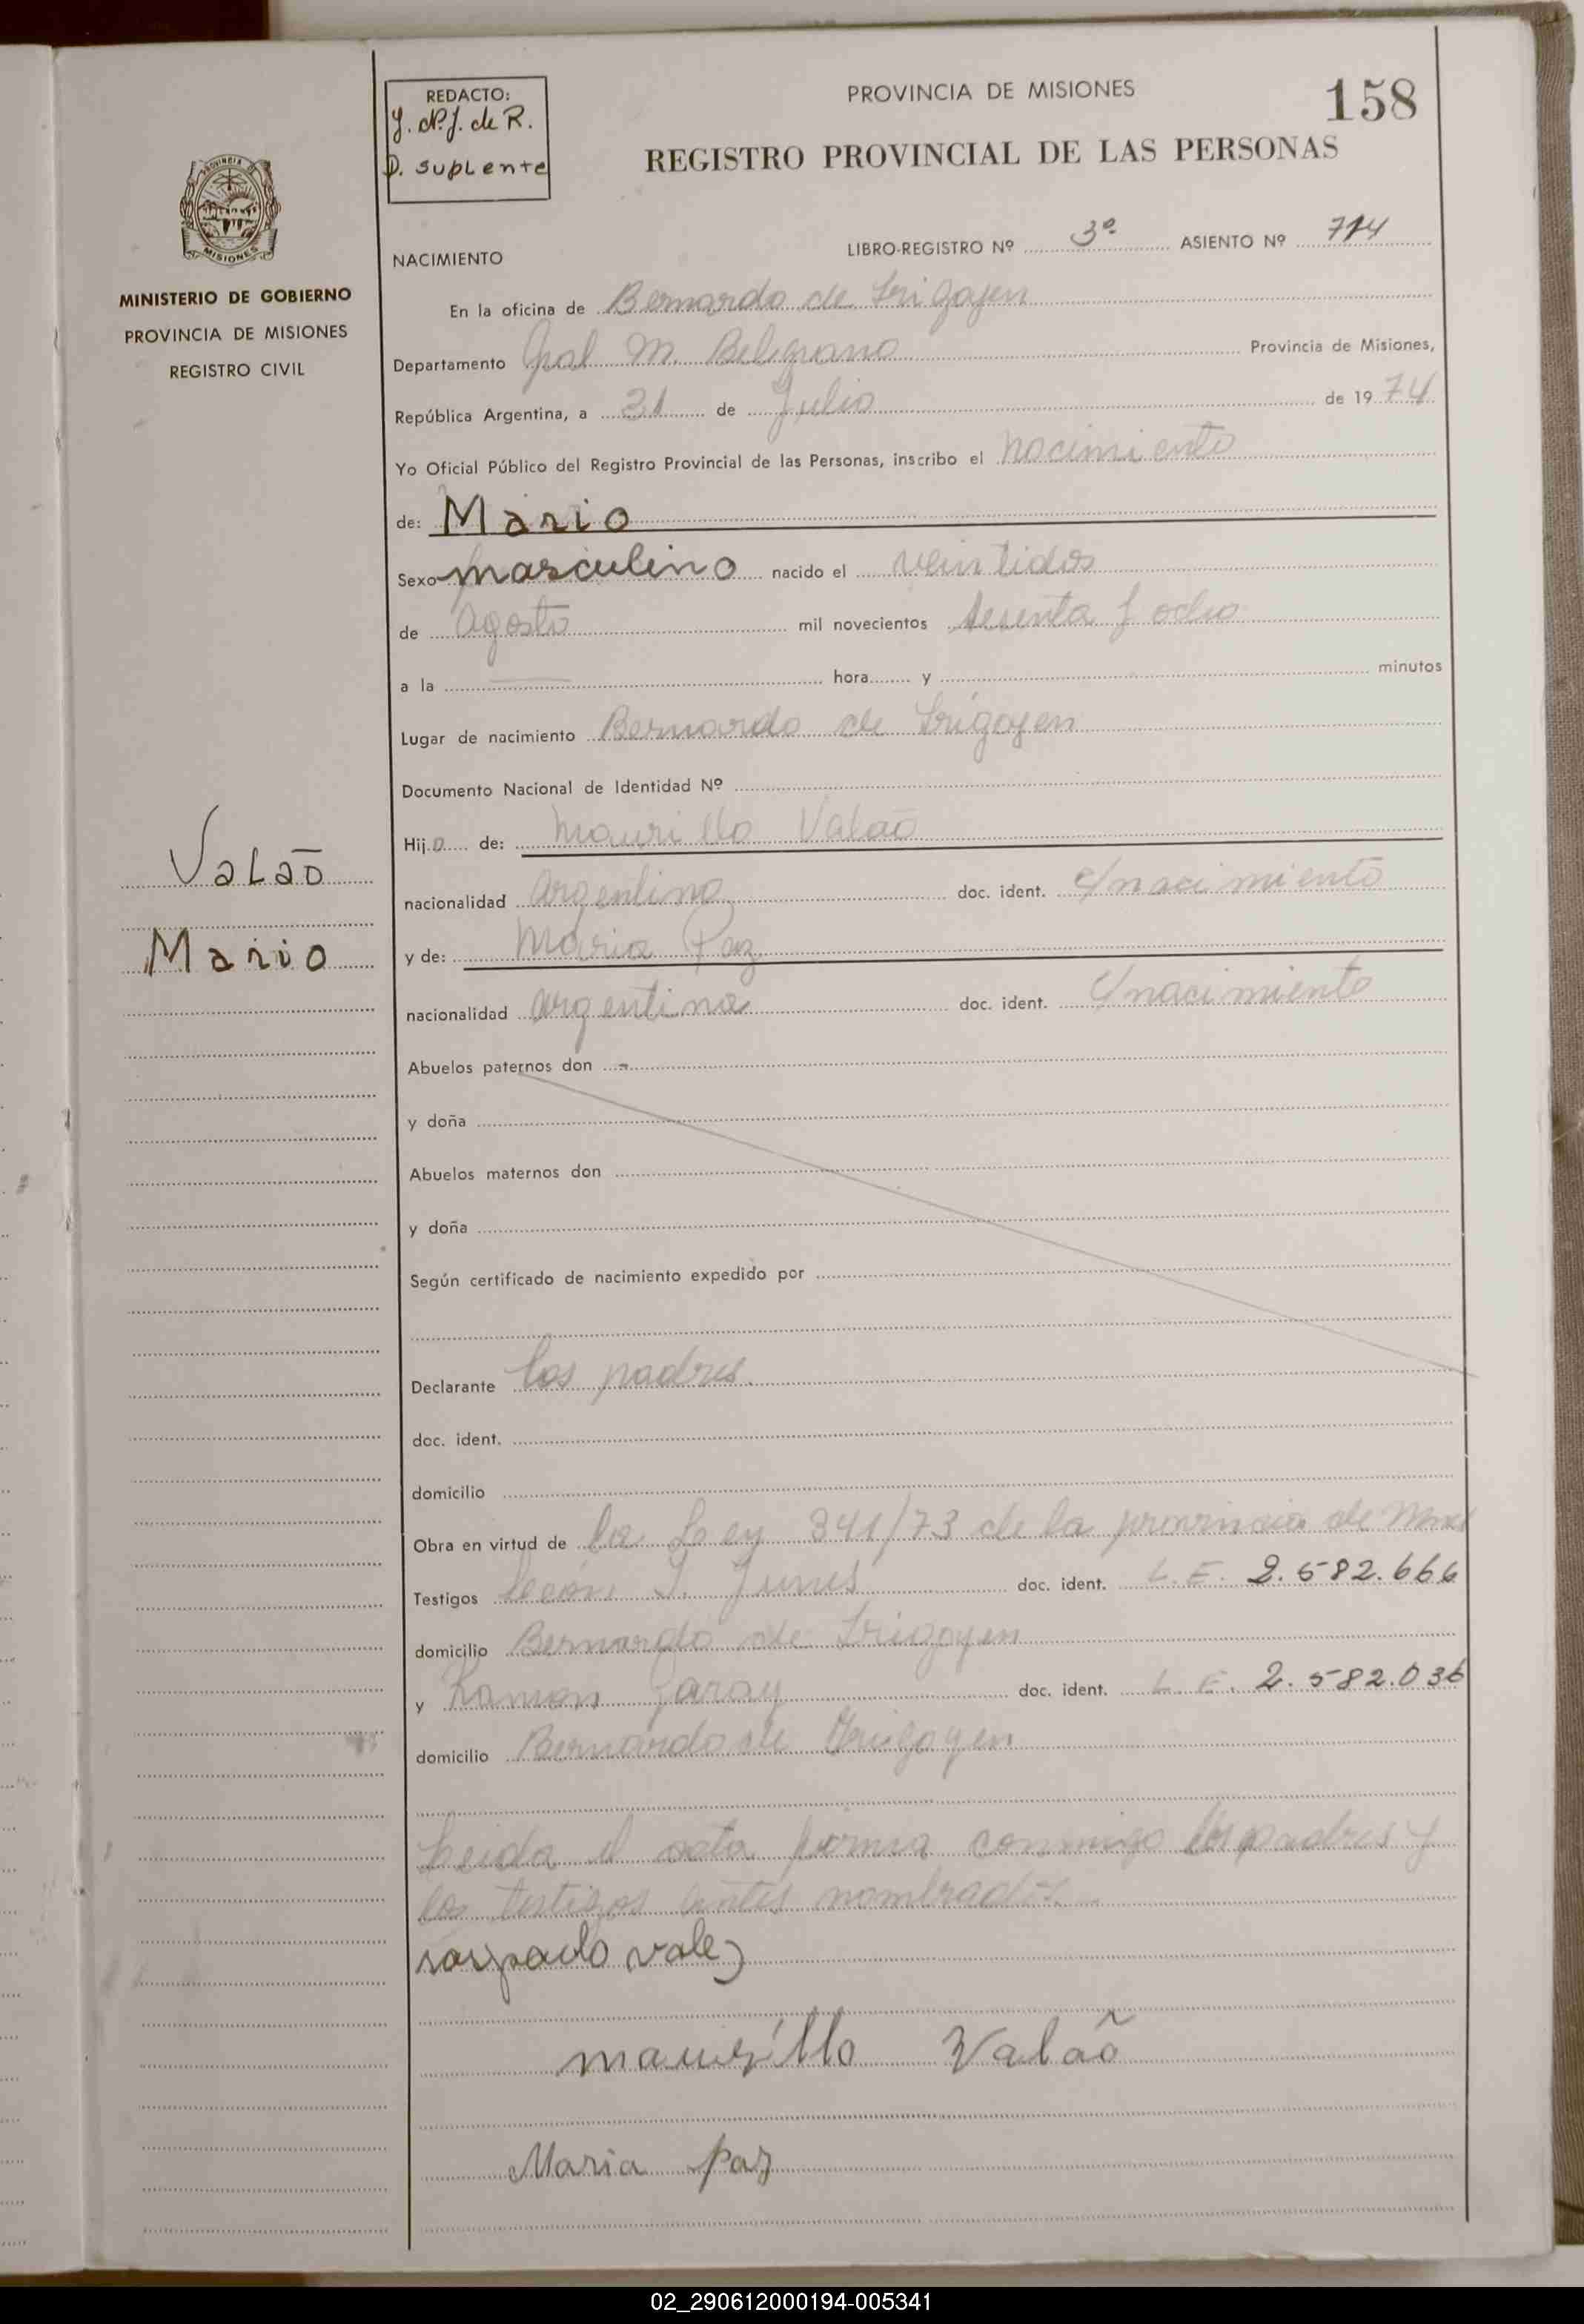 REDACTO:
J. N. J. de R.
D. suplente
PROVINCIA DE MISIONES
158
REGISTRO PROVINCIAL DE LAS PERSONAS
PROVINCIA
MISIONES
MINISTERIO DE GOBIERNO
PROVINCIA DE MISIONES
REGISTRO CIVIL
NACIMIENTO LIBRO-REGISTRO Nº 3º ASIENTO Nº 714
En la oficina de Bernardo de Irigoyen
Departamento Gral M. Belgrano Provincia de Misiones,
República Argentina, a 31 de Julio de 1974
Yo Oficial Público del Registro Provincial de las Personas, inscribo el nacimiento
de: Mario
Sexo masculino nacido el veintidos
de agosto mil novecientos sesenta y ocho
a la hora y minutos
Lugar de nacimiento Bernardo de Irigoyen
Documento Nacional de Identidad Nº
Hijo de: Maurillo Valão
Valão
Mario
nacionalidad argentino doc. ident. c/nacimiento
y de: Maria Paz
nacionalidad argentina doc. ident. c/nacimiento
Abuelos paternos don
y doña
Abuelos maternos don
y doña
Según certificado de nacimiento expedido por
Declarante los padres
doc. ident.
domicilio
Obra en virtud de la Ley 341/73 de la provincia de
Testigos doc. ident. L.E. 2.582.666
domicilio Bernardo de Irigoyen
y Ramon Garay doc. ident. L.E. 2.582.036
domicilio Bernardo de Irigoyen
Leida el acta firma conmigo los padres y
los testigos antes nombrados
raspado vale)
maurillo Valão
Maria paz
02_290612000194-005341